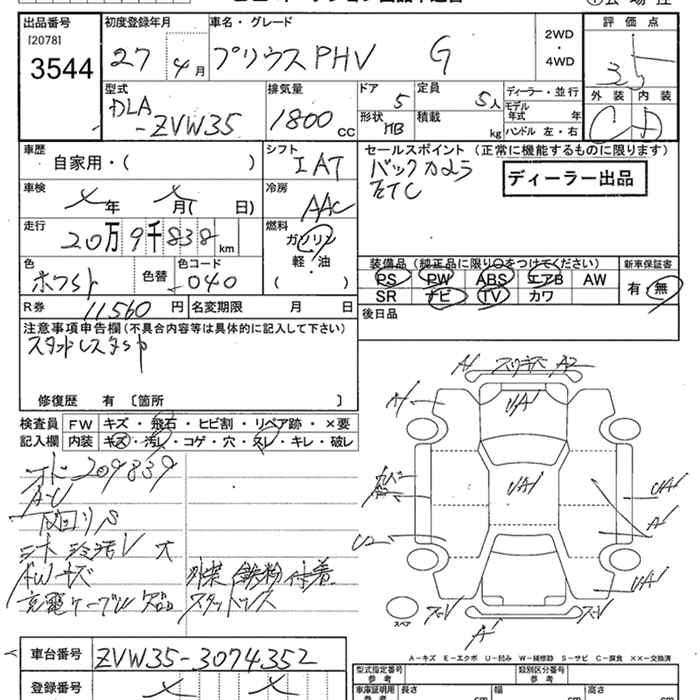 出品番号
[2078]
3544
初度登録年月
27年4月
車名・グレード
プリウスPHV G
2WD
・
4WD
評価点
3.5
外装 内装
C D
型式
DLA
-ZVW35
排気量
1800cc
ドア
5
形状
HB
定員
5人
積載
kg
ディーラー・並行
モデル年式 年
ハンドル 左・右
車歴
自家用・( )
シフト
IAT
車検
年 月( 日)
冷房
AAC
走行
20万9千838km
燃料
ガソリン
軽・油
( )
色
ホワイト
色替
色コード
040
R券
11,560円
名変期限 月 日
セールスポイント (正常に機能するものに限ります)
バックカメラ
ETC
ディーラー出品
装備品(純正品に限り○をつけてください)
PS PW ABS エアB AW
SR ナビ TV カワ
新車保証書
有・無
後日品
注意事項申告欄(不具合内容等は具体的に記入して下さい)
修復歴 有 〔箇所 〕
検査員記入欄
FW キズ・飛石・ヒビ割・リペア跡・×要
内装 キズ・汚レ・コゲ・穴・スレ・キレ・破レ
オド209839
AWキズ
充電ケーブル欠品
外装 鉄粉付着
スタッドレス
A1 スリキズ A2
A1
UA1
UA1
UA1
A1
U2
UA1
A1
スペア
A-キズ E-エクボ U-凹み W-補修跡 S-サビ C-腐食 ××-交換済
車台番号
ZVW35-3074352
登録番号
型式指定番号
参考
類別区分番号
参考
車庫証明用
参考
長さ cm
幅 cm
高さ cm